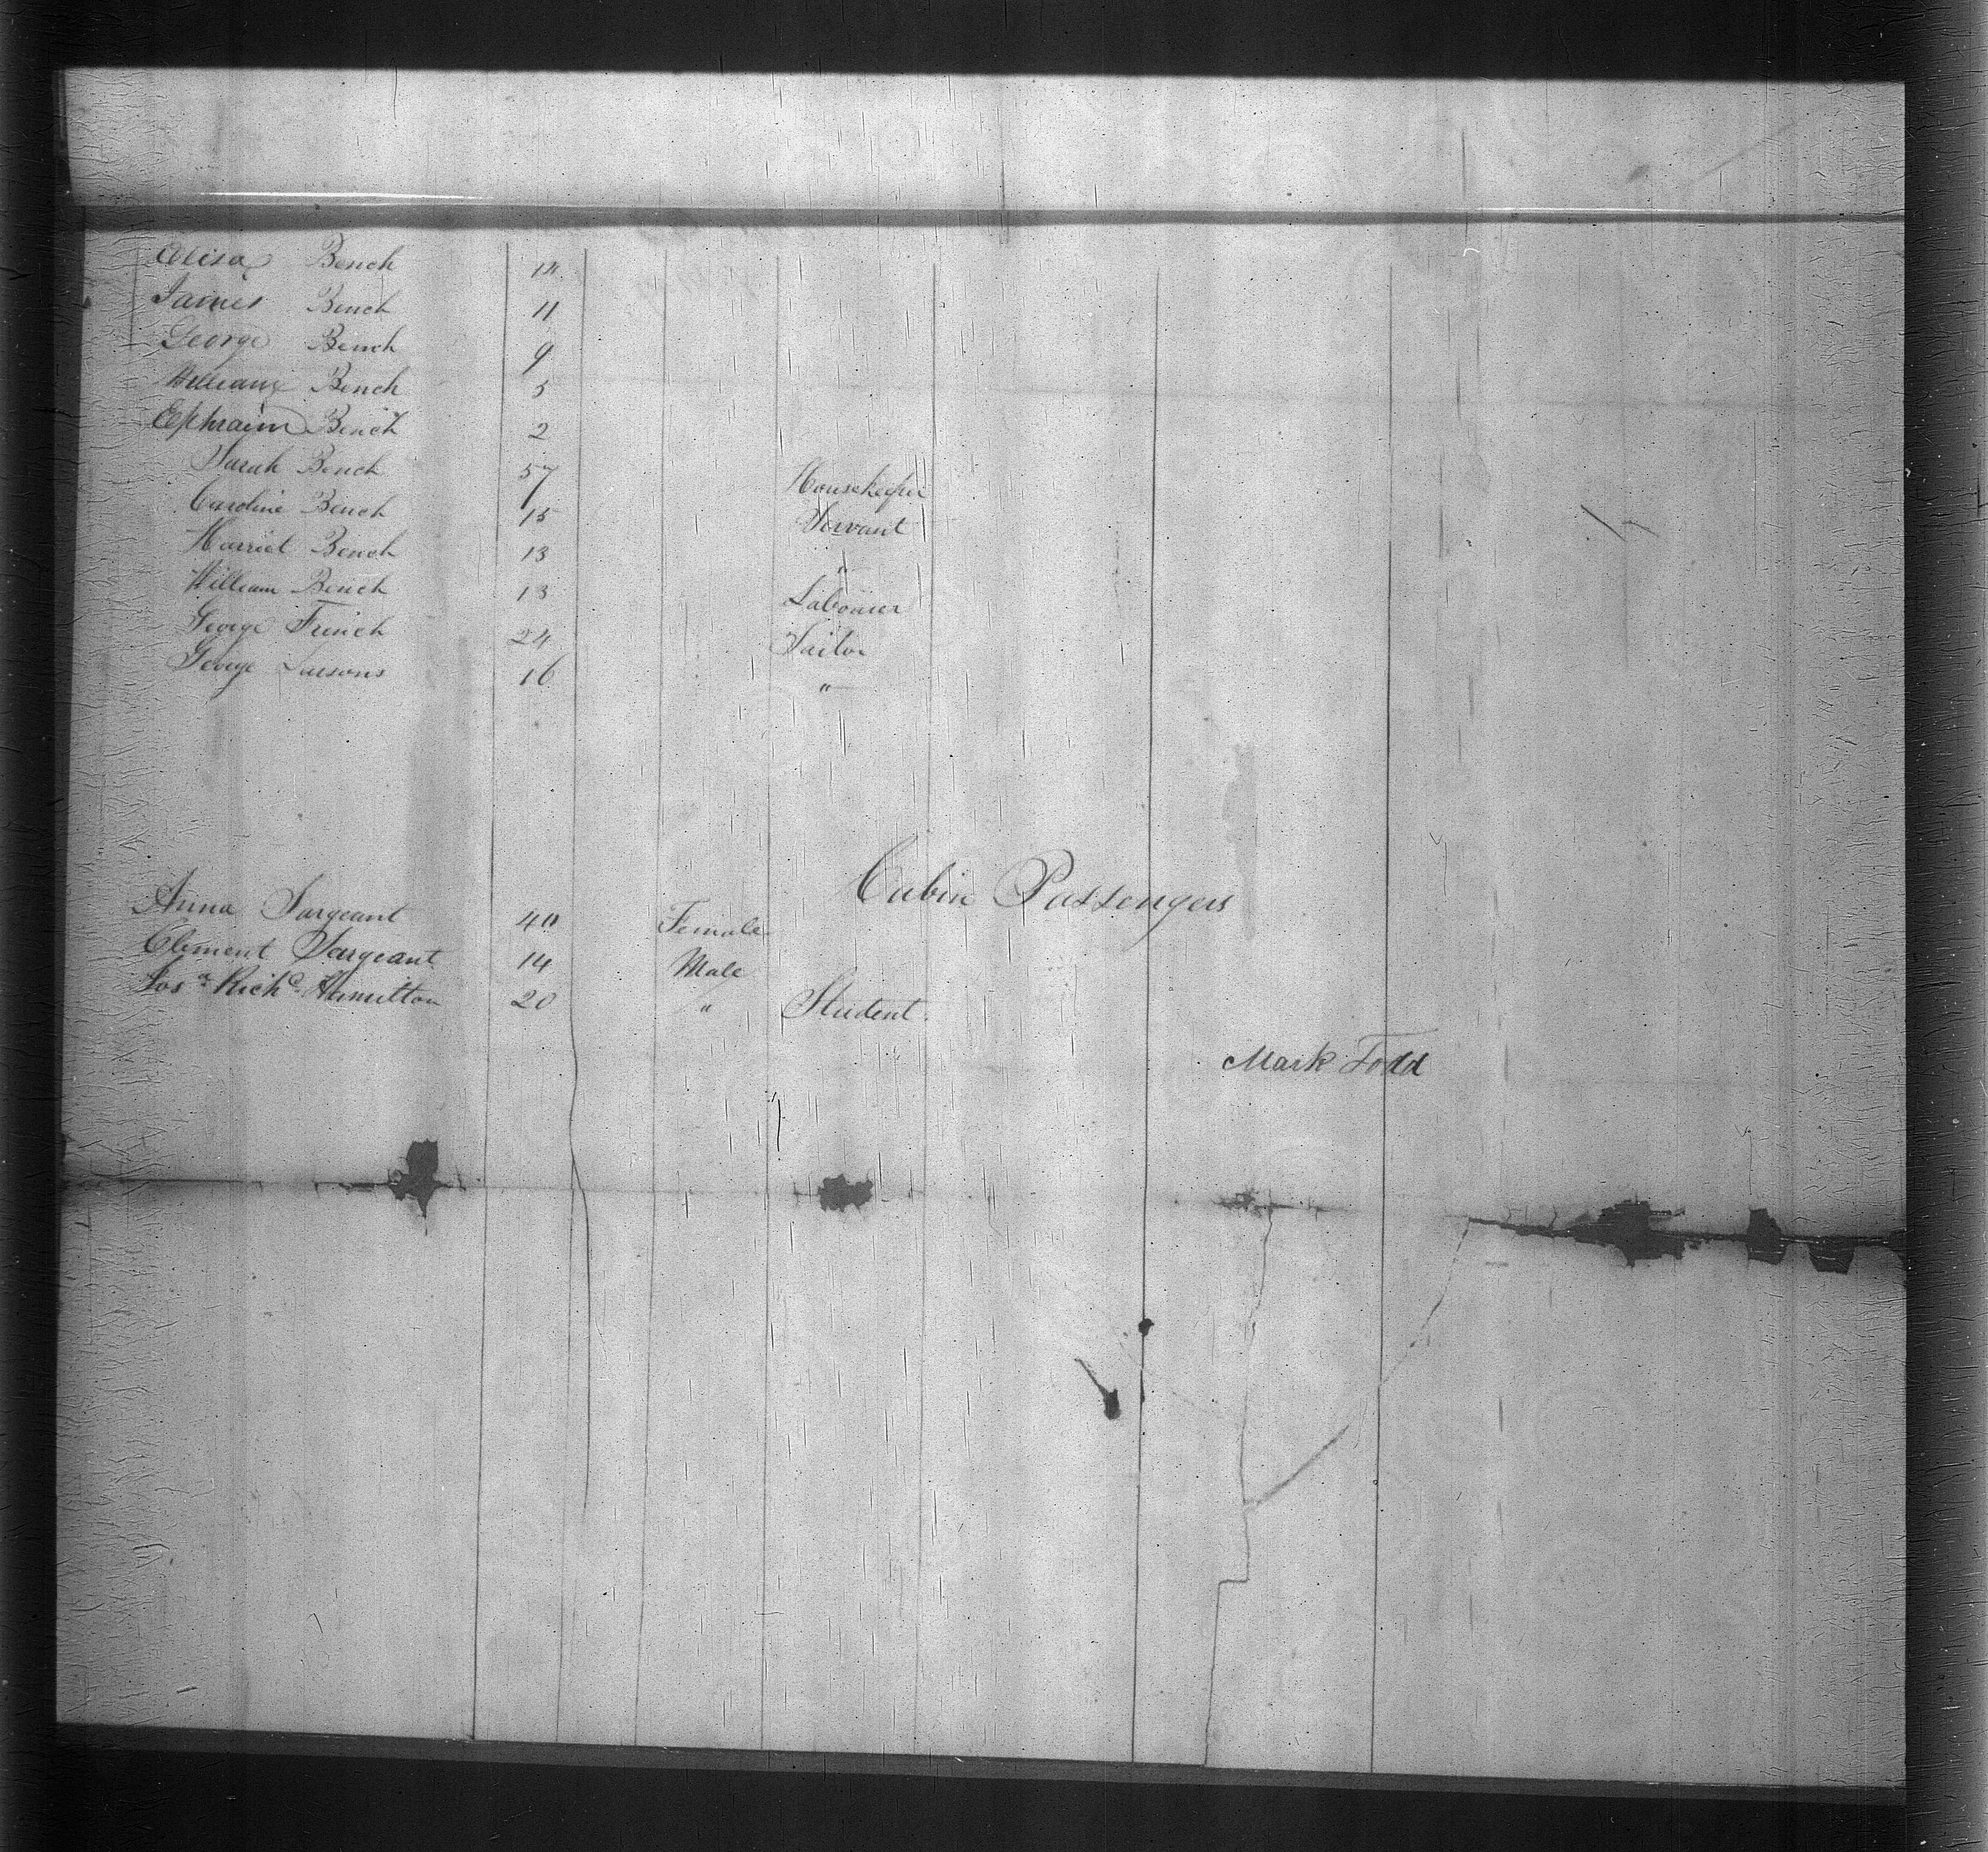 Elisa Bench 14
James Bench 11
George Bench 9
William Bench 5
Ephraim Bench 2
Sarah Bench 57 Housekeeper
Caroline Bench 15 Servant
Harriet Bench 13 "
William Bench 13 Labourer
George French 24 Tailor
George Parsons 16 "
Cabin Passengers
Anna Sargeant 40 Female
Clement Sargeant 14 Male
Jos.h Rich.d Hamilton 20 " Student.
Mark Todd